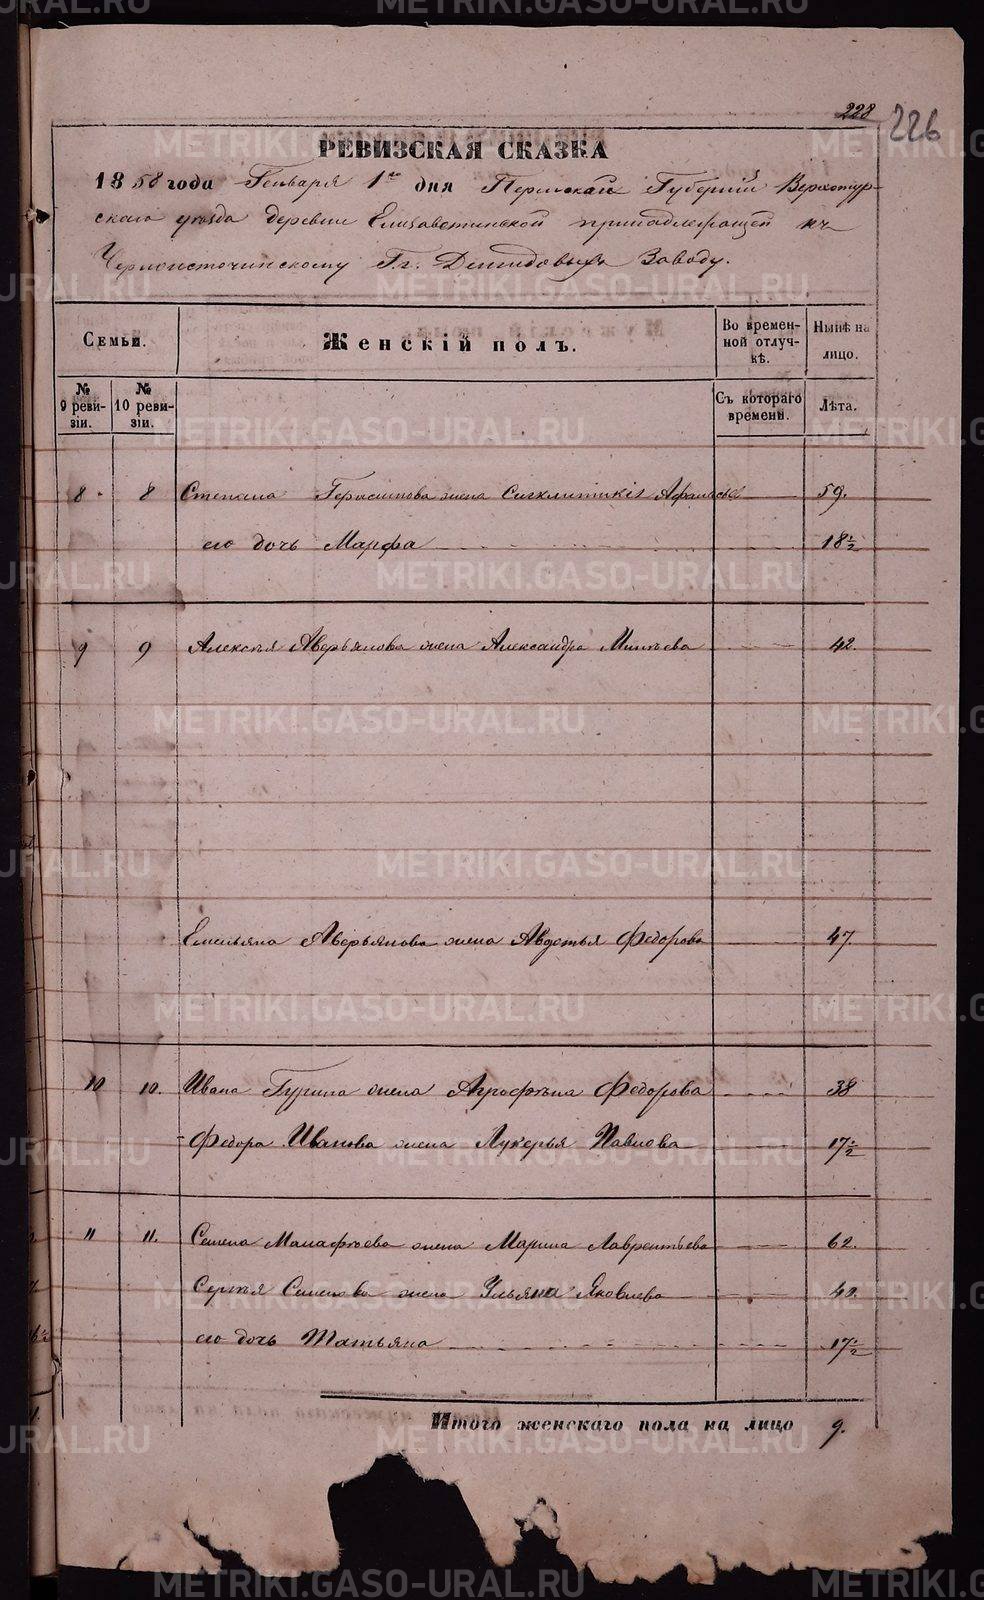 228
226
РЕВИЗСКАЯ СКАЗКА
1858 года Генваря 1го дня Пермской Губернии Верхотур-
скаго уезда деревни Елизаветинской принадлежащей къ
Черноисточинскому Гг. Демидовыхъ Заводу.
Семьи.
Женскій полъ.
Во времен-
ной отлуч-
кѣ.
Нынѣ на
лицо.
№
9 реви-
зіи.
№
10 реви-
зіи.
Съ котораго
времени.
Лѣта.
8. 8 Степана Герасимова жена Сигклитикія Афанасьева 59.
его дочь Марфа 18½
9 9 Алексѣя Аверьянова жена Александра Минѣева 42.
Емельяна Аверьянова жена Авдотья Федорова 47
10 10. Ивана Гурина жена Агрофѣна Федорова 38
Федора Иванова жена Лукерья Павлова 17½
11 11. Семена Манафѣева жена Марина Лаврентьева 62.
Сергѣя Семенова жена Ульяна Яковлева
его дочь Татьяна 17½
Итого женскаго пола на лицо 9.
METRIKI.GASO-URAL.RU